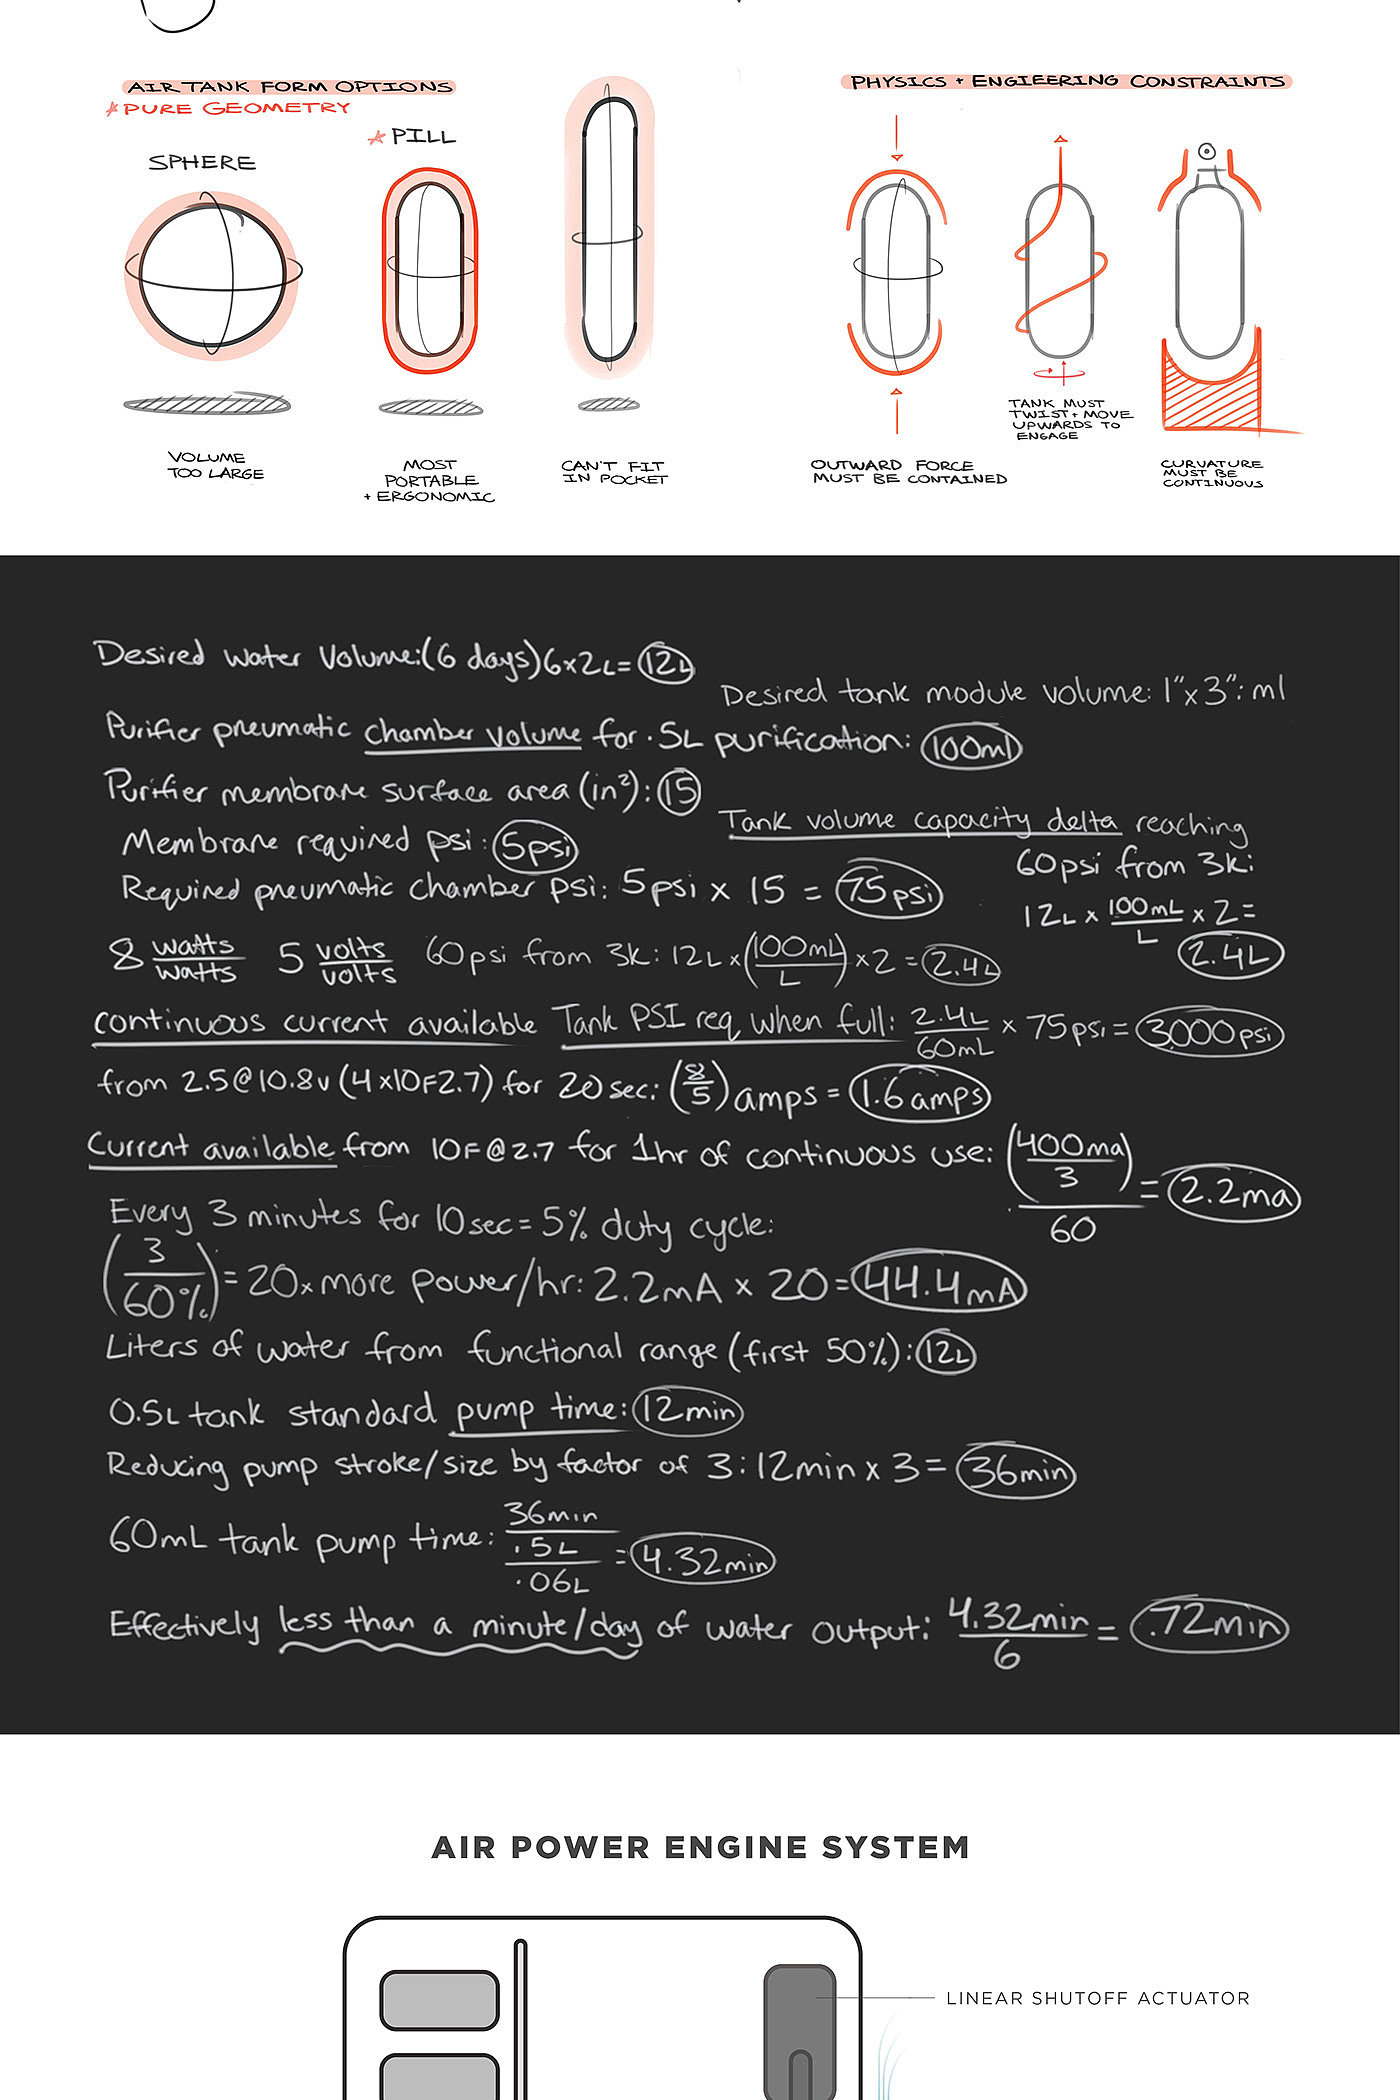 AIR TANK FORM OPTIONS
PURE GEOMETRY
SPHERE
PILL
VOLUME
TOO LARGE
MOST
PORTABLE
+ ERGONOMIC
CAN'T FIT
IN POCKET
PHYSICS + ENGIEERING CONSTRAINTS
OUTWARD FORCE
MUST BE CONTAINED
TANK MUST
TWIST + MOVE
UPWARDS TO
ENGAGE
CURVATURE
MUST BE
CONTINUOUS
Desired water Volume: (6 days) 6x2L = 12L
Desired tank module volume: 1"x 3": ml
Purifier pneumatic chamber volume for .5L purification: 100ml
Purifier membrane surface area (in²): 15
Membrane required psi: 5psi
Tank volume capacity delta reaching
60psi from 3k:
12L x 100mL/L x 2 =
2.4L
Required pneumatic chamber psi: 5psi x 15 = 75psi
8 watts/watts 5 volts/volts 60psi from 3k: 12L x (100mL/L) x 2 = 2.4L
continuous current available Tank PSI req when full: 2.4L/60mL x 75psi = 3000psi
from 2.5@10.8v (4x10F2.7) for 20sec: (8/5) amps = 1.6 amps
Current available from 10F@2.7 for 1hr of continuous use: (400ma/3)/60 = 2.2ma
Every 3 minutes for 10sec = 5% duty cycle:
(3/60%) = 20x more power/hr: 2.2mA x 20 = 44.4mA
Liters of water from functional range (first 50%): 12L
0.5L tank standard pump time: 12min
Reducing pump stroke/size by factor of 3: 12min x 3 = 36min
60mL tank pump time: 36min/.5L/.06L = 4.32min
Effectively less than a minute/day of water output: 4.32min/6 = .72min
AIR POWER ENGINE SYSTEM
LINEAR SHUTOFF ACTUATOR